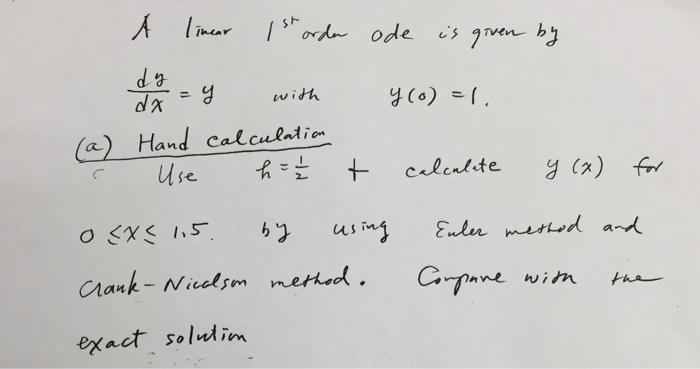 A linear 1st order ode is given by
dy/dx = y with y(0) = 1.
(a) Hand calculation
Use h = 1/2 + calculate y(x) for
0 ≤ x ≤ 1.5. by using Euler method and
Crank-Nicolson method. Compare with the
exact solution